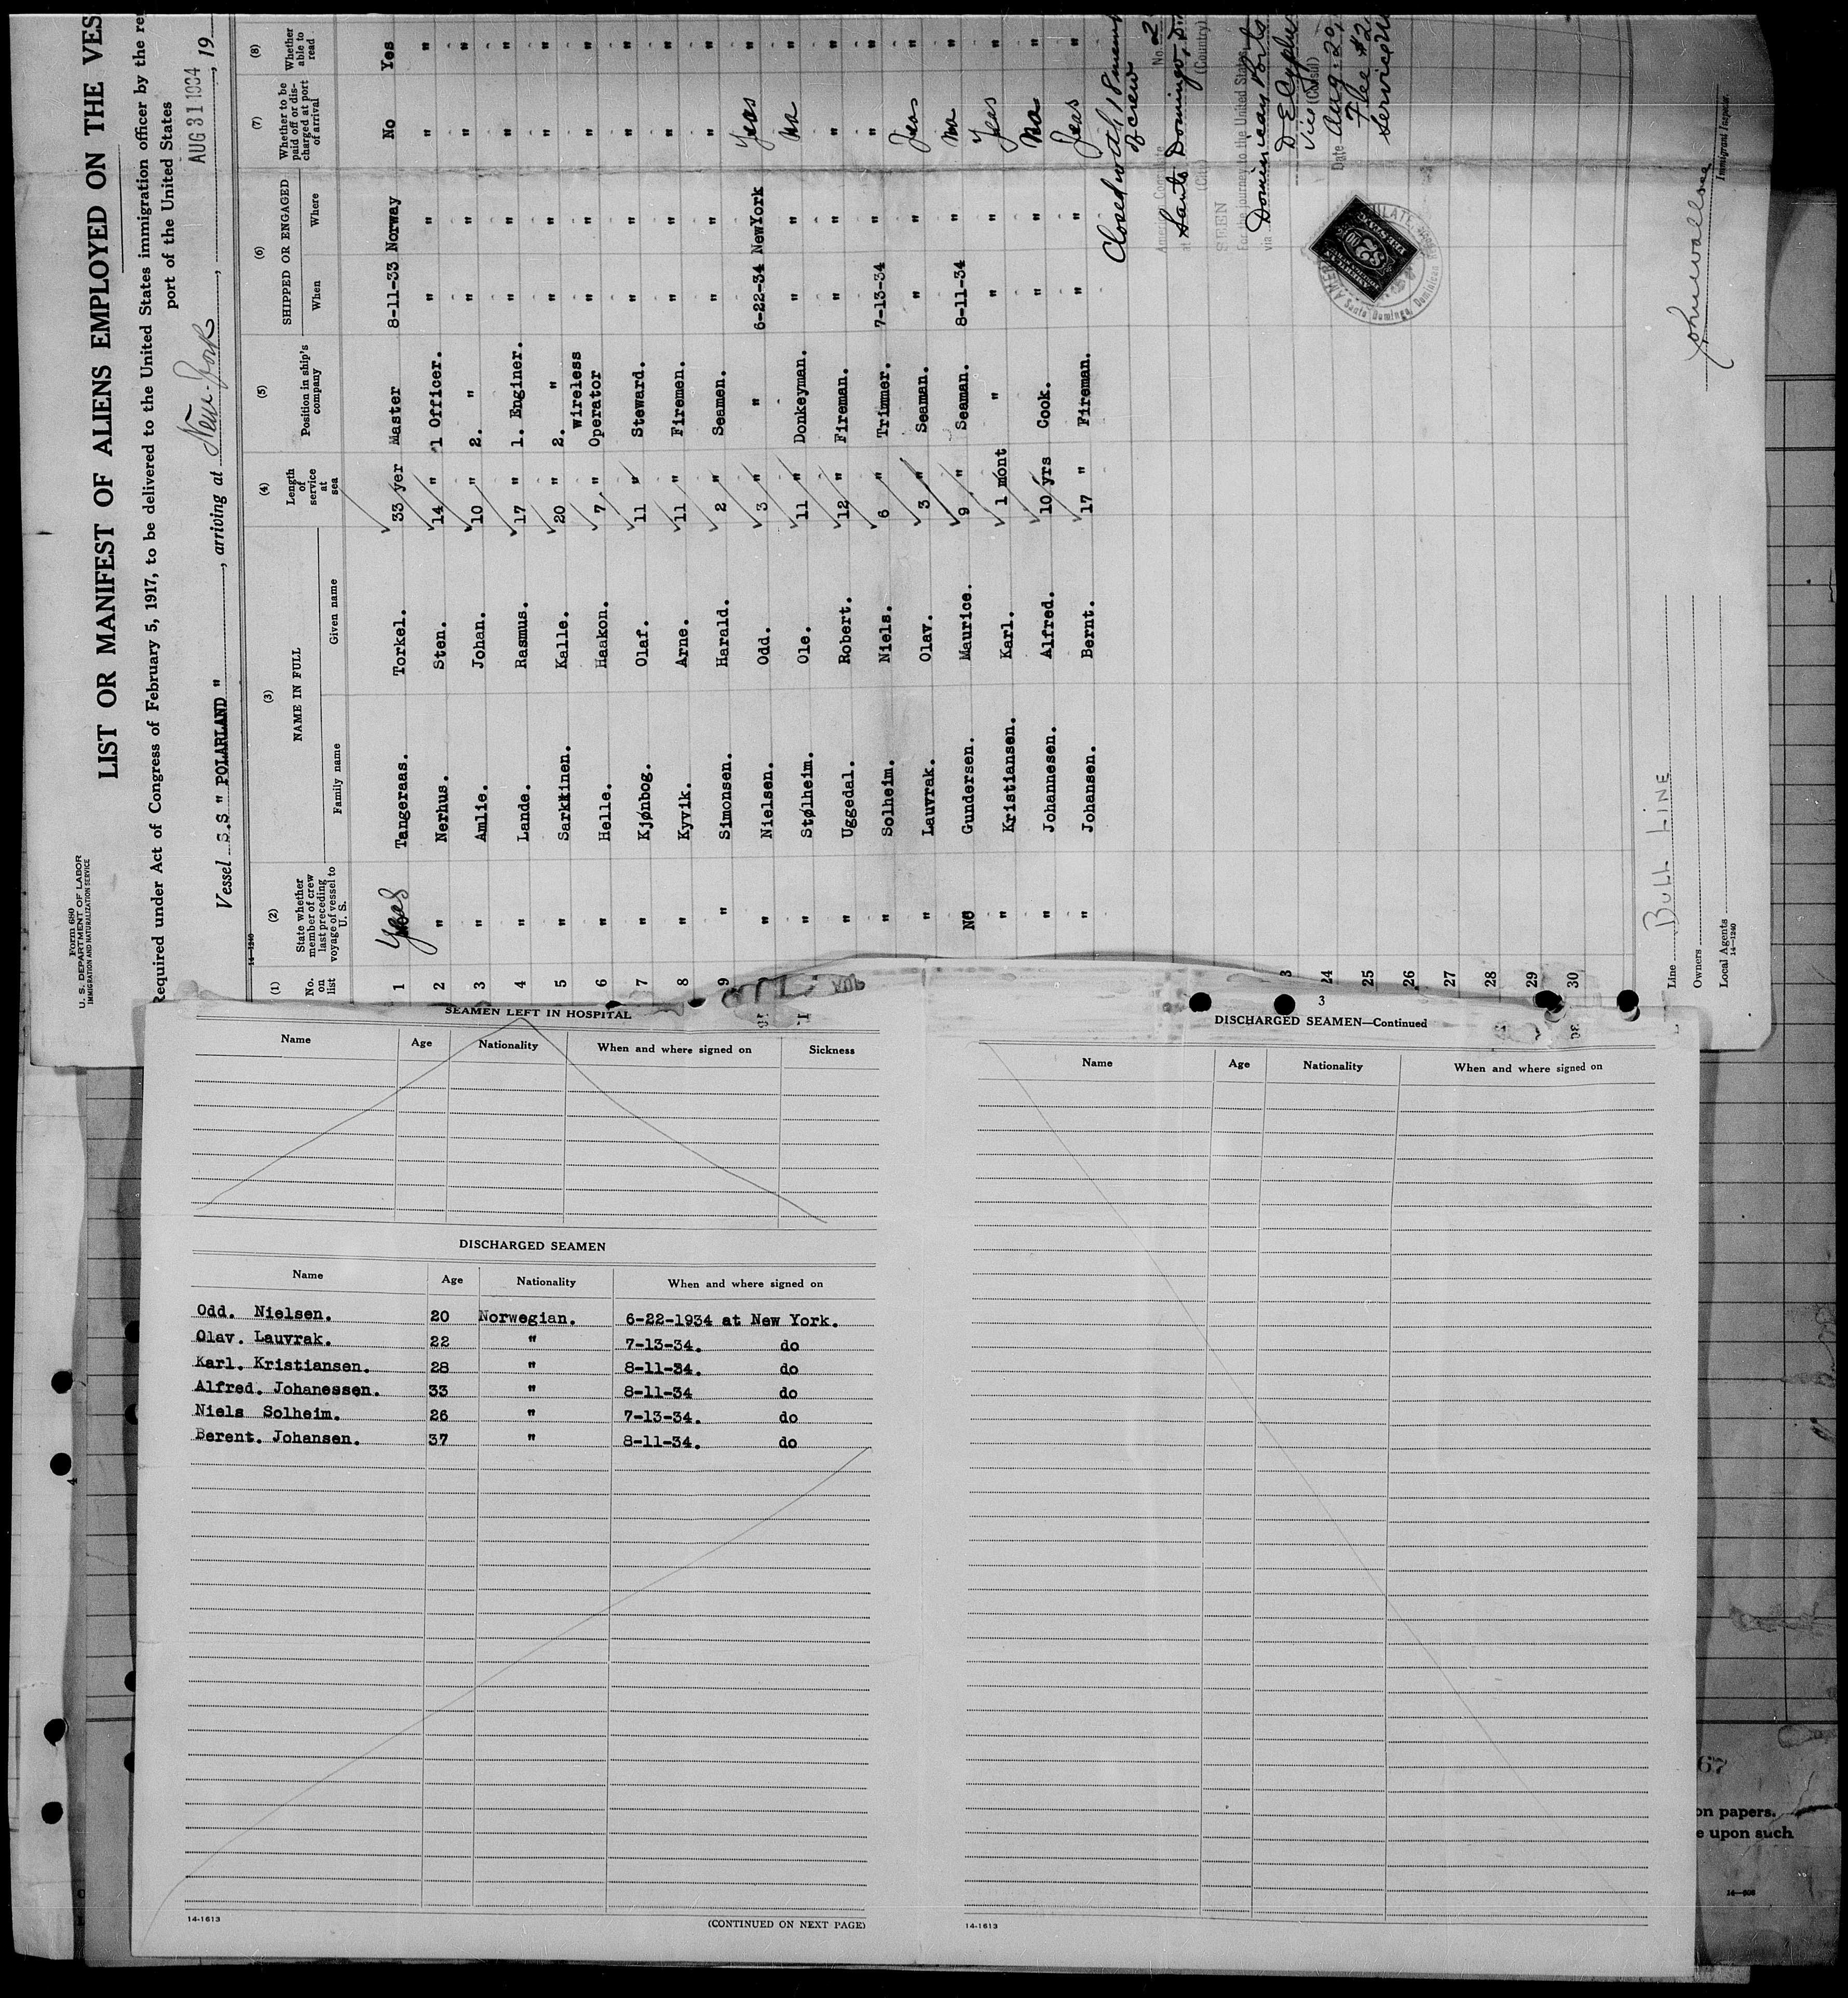 Form 680
U. S. DEPARTMENT OF LABOR
IMMIGRATION AND NATURALIZATION SERVICE
LIST OR MANIFEST OF ALIENS EMPLOYED ON THE VES
Required under Act of Congress of February 5, 1917, to be delivered to the United States immigration officer by the re
port of the United States
Vessel S.S " POLARLAND ", arriving at New York, AUG 31 1934, 19
14-1240
(1) (2) (3) (4) (5) (6) (7) (8)
No. on list State whether member of crew last preceding voyage of vessel to U. S. NAME IN FULL Length of service at sea Position in ship's company SHIPPED OR ENGAGED Whether to be paid off or discharged at port of arrival Whether able to read
Family name Given name When Where
1 Yes Tangeraas. Torkel. 33 yer Master 8-11-33 Norway No Yes
2 " Nerhus. Sten. 14 " 1 Officer. " " " "
3 " Amlie. Johan. 10 " 2. " " " " "
4 " Lande. Rasmus. 17 " 1. Enginer. " " " "
5 " Sarkkinen. Kalle. 20 " 2. " " " " "
6 " Helle. Haakon. 7 " Wireless Operator " " " "
7 " Kjønbog. Olaf. 11 " Steward. " " " "
8 " Kyvik. Arne. 11 " Firemen. " " " "
9 " Simonsen. Harald. 2 " Seamen. " " " "
" Nielsen. Odd. 3 " " 6-22-34 NewYork Yeas "
" Stølheim. Ole. 11 " Donkeyman. " " No "
" Uggedal. Robert. 12 " Fireman. " " " "
" Solheim. Niels. 6 " Trimmer. 7-13-34 " " "
" Lauvrak. Olav. 3 " Seaman. " " Yeas "
NO Gundersen. Maurice. 9 " Seaman. 8-11-34 " No "
" Kristiansen. Karl. 1 mont " " " Yeas "
" Johannesen. Alfred. 10 yrs Cook. " " No "
" Johansen. Bernt. 17 " Fireman. " " Yeas "
Closed with 18 members
of crew
American Consulate No. 2
at Santo Domingo, D.
(City) (Country)
SEEN
For the journey to the United States
via Dominican Ports
Vice (Consul)
Date Aug. 20,
Fee $2
Service
AMERICAN
$2.00
Santo Domingo, Dominican
3
24
25
26
27
28
29
30
Line BULL LINE
Owners
Local Agents
14-1240
Immigrant Inspector.
SEAMEN LEFT IN HOSPITAL
Name Age Nationality When and where signed on Sickness
DISCHARGED SEAMEN
Name Age Nationality When and where signed on
Odd. Nielsen. 20 Norwegian. 6-22-1934 at New York.
Olav. Lauvrak. 22 " 7-13-34. do
Karl. Kristiansen. 28 " 8-11-34. do
Alfred. Johanessen. 33 " 8-11-34 do
Niels Solheim. 26 " 7-13-34. do
Berent. Johansen. 37 " 8-11-34. do
14-1613
(CONTINUED ON NEXT PAGE)
3
DISCHARGED SEAMEN—Continued
Name Age Nationality When and where signed on
14-1613
67
on papers.
e upon such